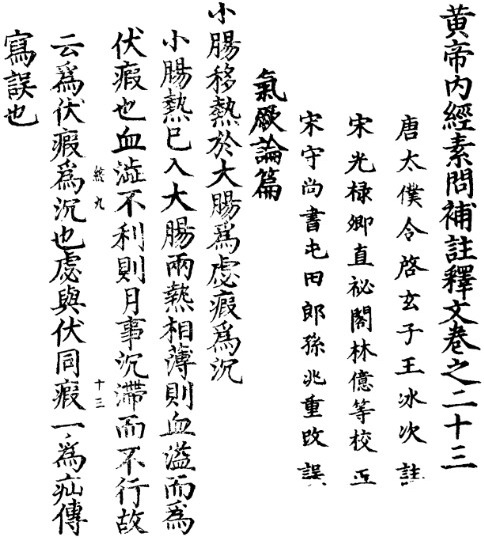 黄帝内經素問補註釋文卷之二十三
唐太僕令啓玄子王冰次註
宋光祿卿直祕閣林億等校正
宋守尚書屯田郎孫兆重改誤
氣厥論篇
小腸移熱於大腸爲虙瘕爲沉
小腸熱已入大腸兩熱相薄則血溢而爲
伏瘕也血澁不利則月事沉滯而不行故
云爲伏瘕爲沉也虙與伏同瘕一爲疝傳
寫誤也
十三